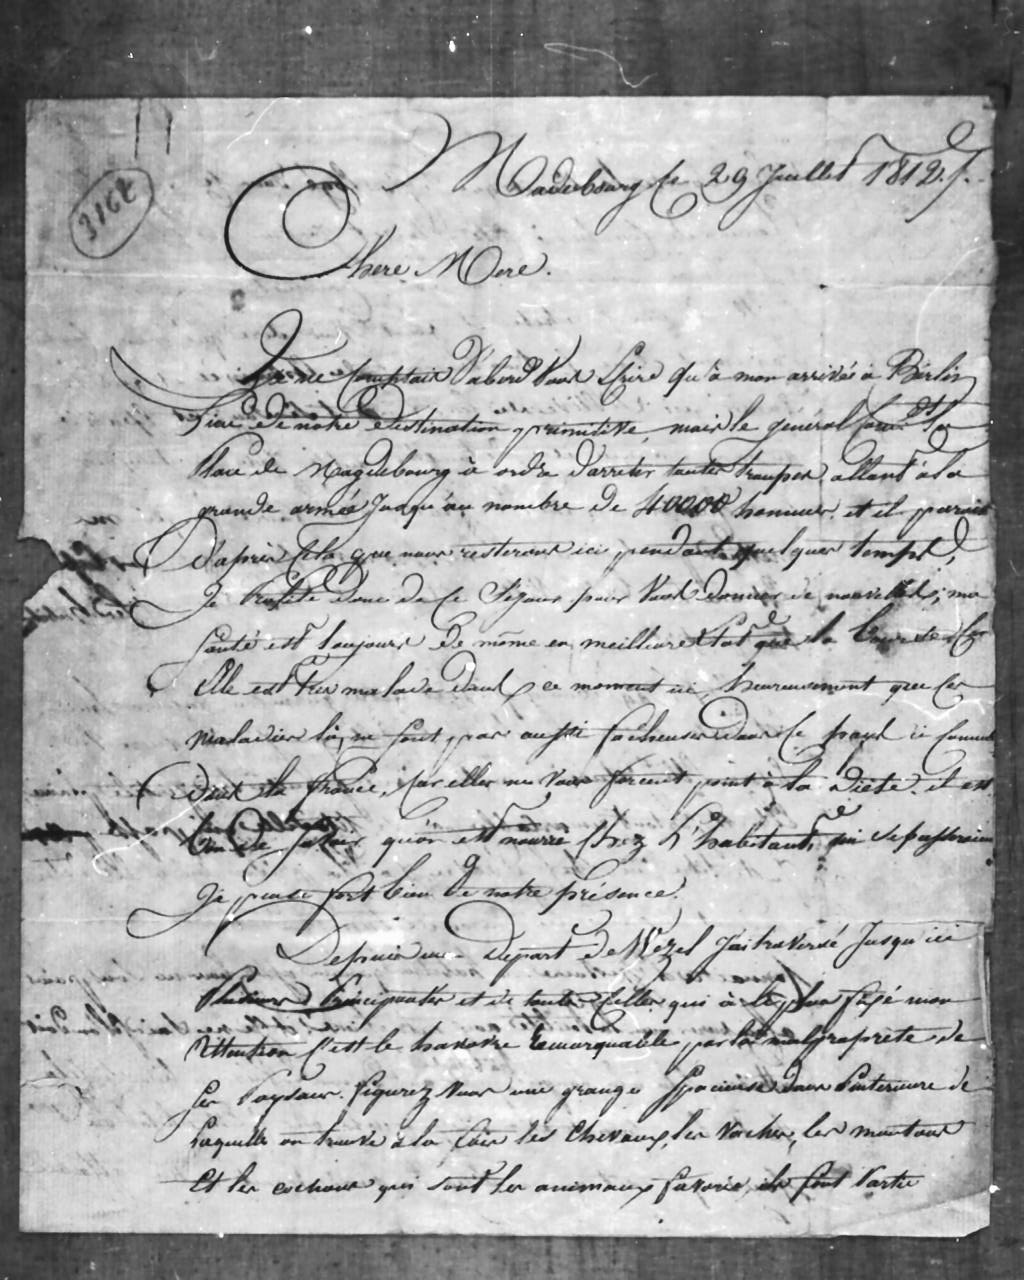 3162
Madebourg le 29 Juillet 1812.
Chere Mere.
Je ne Comptais D'abord Vous Ecrire qu'à mon arrivée à Berlin
Lieu de notre destination primitive, mais le général Com.dt la
Place de Magdebourg à ordre d'arreter toutes troupes allant à la
grande armée Jusqu'au nombre de 40000 hommes et il parait
D'apres Cela que nous resterons ici pendant quelques temps,
Je Profite donc de Ce Séjour pour Vous donner de nouvelles, ma
Santé est toujours De même en meilleure Etat que la Bourse Car
Elle est tres malade dans ce moment ici, heureusement que Ces
maladies là, ne sont pas aussi facheuses dans Ce pays ici Comme
Dans la France, Car elles ne vous forcent point à la Diète. il est
qu'on est nourri Chez L'habitant, qui se passerai
Je pense fort bien De notre présence.
Depuis mon Depart de Wezel J'ai traversé Jusqu'ici
Plusieurs Principautés et de toutes Celles qui à le plus fixé mon
Attention C'est le hanovre Remarquable par la malpropreté de
Ses Paysans. figurez Vous une grange Spacieuse dans L'interieure de
Laquelle on trouve à la fois les Chevaux, les Vaches, les moutons
Et les cochons qui sont les animaux favoris, ils font Partie